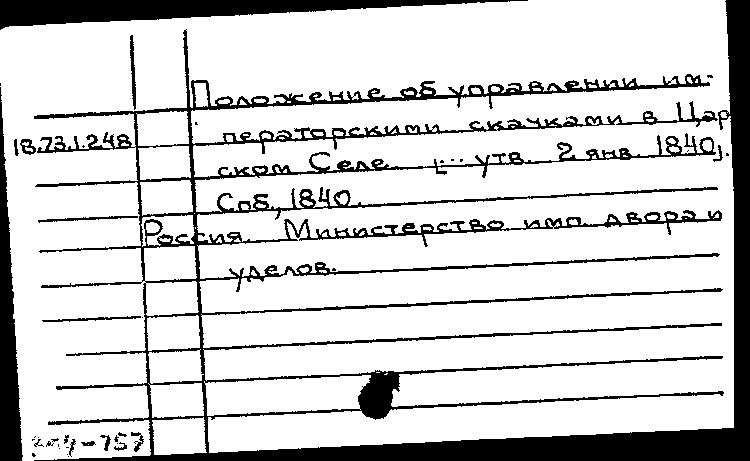 Положение об управлении им-
18.73.1.248 ператорскими скачками в Цар
ском Селе. [... утв. 2 янв. 1840].
Спб., 1840.
Россия. Министерство имп. двора и
уделов.
-757